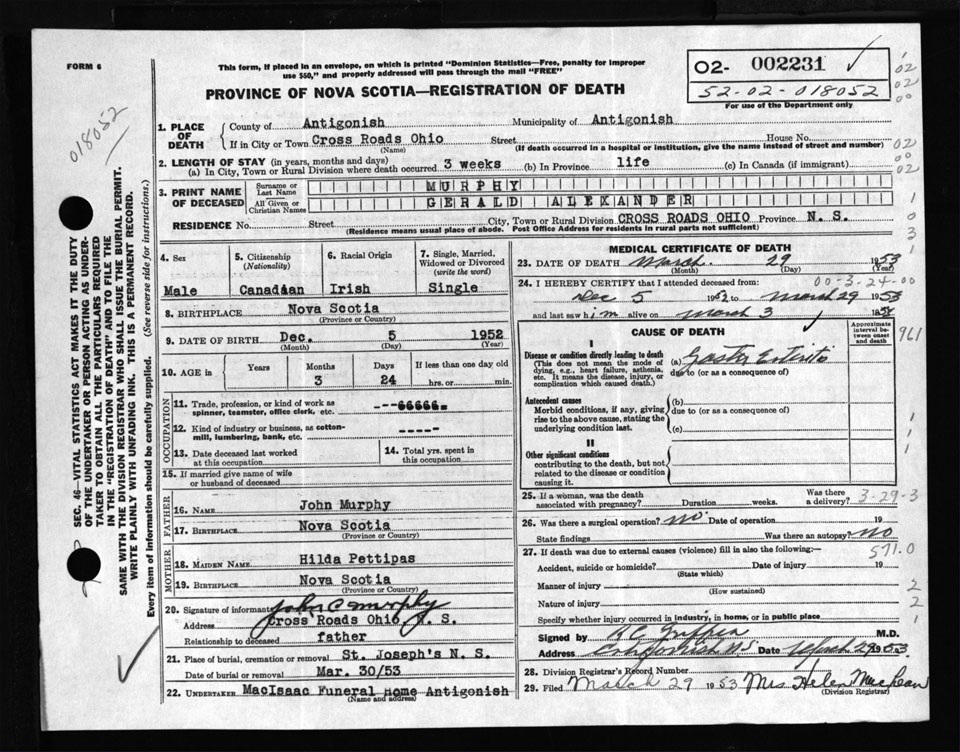 FORM 6
This form, if placed in an envelope, on which is printed "Dominion Statistics—Free, penalty for improper
use $50," and properly addressed will pass through the mail "FREE"
PROVINCE OF NOVA SCOTIA—REGISTRATION OF DEATH
02- 002231
52-02-018052
For use of the Department only
018052
SEC. 46—VITAL STATISTICS ACT MAKES IT THE DUTY
OF THE UNDERTAKER OR PERSON ACTING AS UNDER-
TAKER TO OBTAIN ALL THE PARTICULARS REQUIRED
IN THE "REGISTRATION OF DEATH" AND TO FILE THE
SAME WITH THE DIVISION REGISTRAR WHO SHALL ISSUE THE BURIAL PERMIT.
WRITE PLAINLY WITH UNFADING INK. THIS IS A PERMANENT RECORD.
Every item of information should be carefully supplied. (See reverse side for instructions.)
1. PLACE OF DEATH County of Antigonish Municipality of Antigonish
If in City or Town Cross Roads Ohio Street House No.
(Name) (If death occurred in a hospital or institution, give the name instead of street and number)
2. LENGTH OF STAY (in years, months and days)
(a) In City, Town or Rural Division where death occurred 3 weeks (b) In Province life (c) In Canada (if immigrant)
3. PRINT NAME OF DECEASED Surname or Last Name MURPHY
All Given or Christian Names GERALD ALEXANDER
RESIDENCE No. Street City, Town or Rural Division CROSS ROADS OHIO Province N. S.
(Residence means usual place of abode. Post Office Address for residents in rural parts not sufficient)
4. Sex 5. Citizenship (Nationality) 6. Racial Origin 7. Single, Married, Widowed or Divorced (write the word)
Male Canadian Irish Single
8. BIRTHPLACE Nova Scotia
(Province or Country)
9. DATE OF BIRTH Dec. 5 1952
(Month) (Day) (Year)
10. AGE in Years Months Days If less than one day
3 24 hrs. or min.
OCCUPATION
11. Trade, profession, or kind of work as spinner, teamster, office clerk, etc.
12. Kind of industry or business, as cotton-mill, lumbering, bank, etc. -----
13. Date deceased last worked at this occupation
14. Total yrs. spent in this occupation
15. If married give name of wife or husband of deceased
FATHER
16. NAME John Murphy
17. BIRTHPLACE Nova Scotia
(Province or Country)
MOTHER
18. MAIDEN NAME Hilda Pettipas
19. BIRTHPLACE Nova Scotia
(Province or Country)
20. Signature of informant John C Murphy
Address Cross Roads Ohio, N. S.
Relationship to deceased father
21. Place of burial, cremation or removal St. Joseph's N. S.
Date of burial or removal Mar. 30/53
22. UNDERTAKER MacIsaac Funeral Home Antigonish
(Name and address)
MEDICAL CERTIFICATE OF DEATH
23. DATE OF DEATH March 29 1953
(Month) (Day) (Year)
00-3-24-00
24. I HEREBY CERTIFY that I attended deceased from:
Dec 5 1952 to March 29 1953
and last saw him alive on March 3 195
CAUSE OF DEATH
Approximate interval between onset and death
I
Disease or condition directly leading to death
(This does not mean the mode of dying, e.g., heart failure, asthenia, etc. It means the disease, injury, or complication which caused death.)
(a) Gastro Enteritis
due to (or as a consequence of)
Antecedent causes
Morbid conditions, if any, giving rise to the above cause, stating the underlying condition last.
(b)
due to (or as a consequence of)
(c)
II
Other significant conditions
contributing to the death, but not related to the disease or condition causing it.
25. If a woman, was the death associated with pregnancy? Duration weeks. Was there a delivery?
3-29-3
26. Was there surgical operation? no Date of operation 19
State findings Was there an autopsy? no
27. If death was due to external causes (violence) fill in also the following:—
571.0
Accident, suicide or homicide? Date of injury 19
(State which)
Manner of injury
(How sustained)
Nature of injury
Specify whether injury occurred in industry, in home, or in public place
Signed by M.D.
Address Antigonish NS Date March 29 1953.
28. Division Registrar's Record Number
29. Filed March 29 1953 Mrs. Helen MacLean
(Division Registrar)